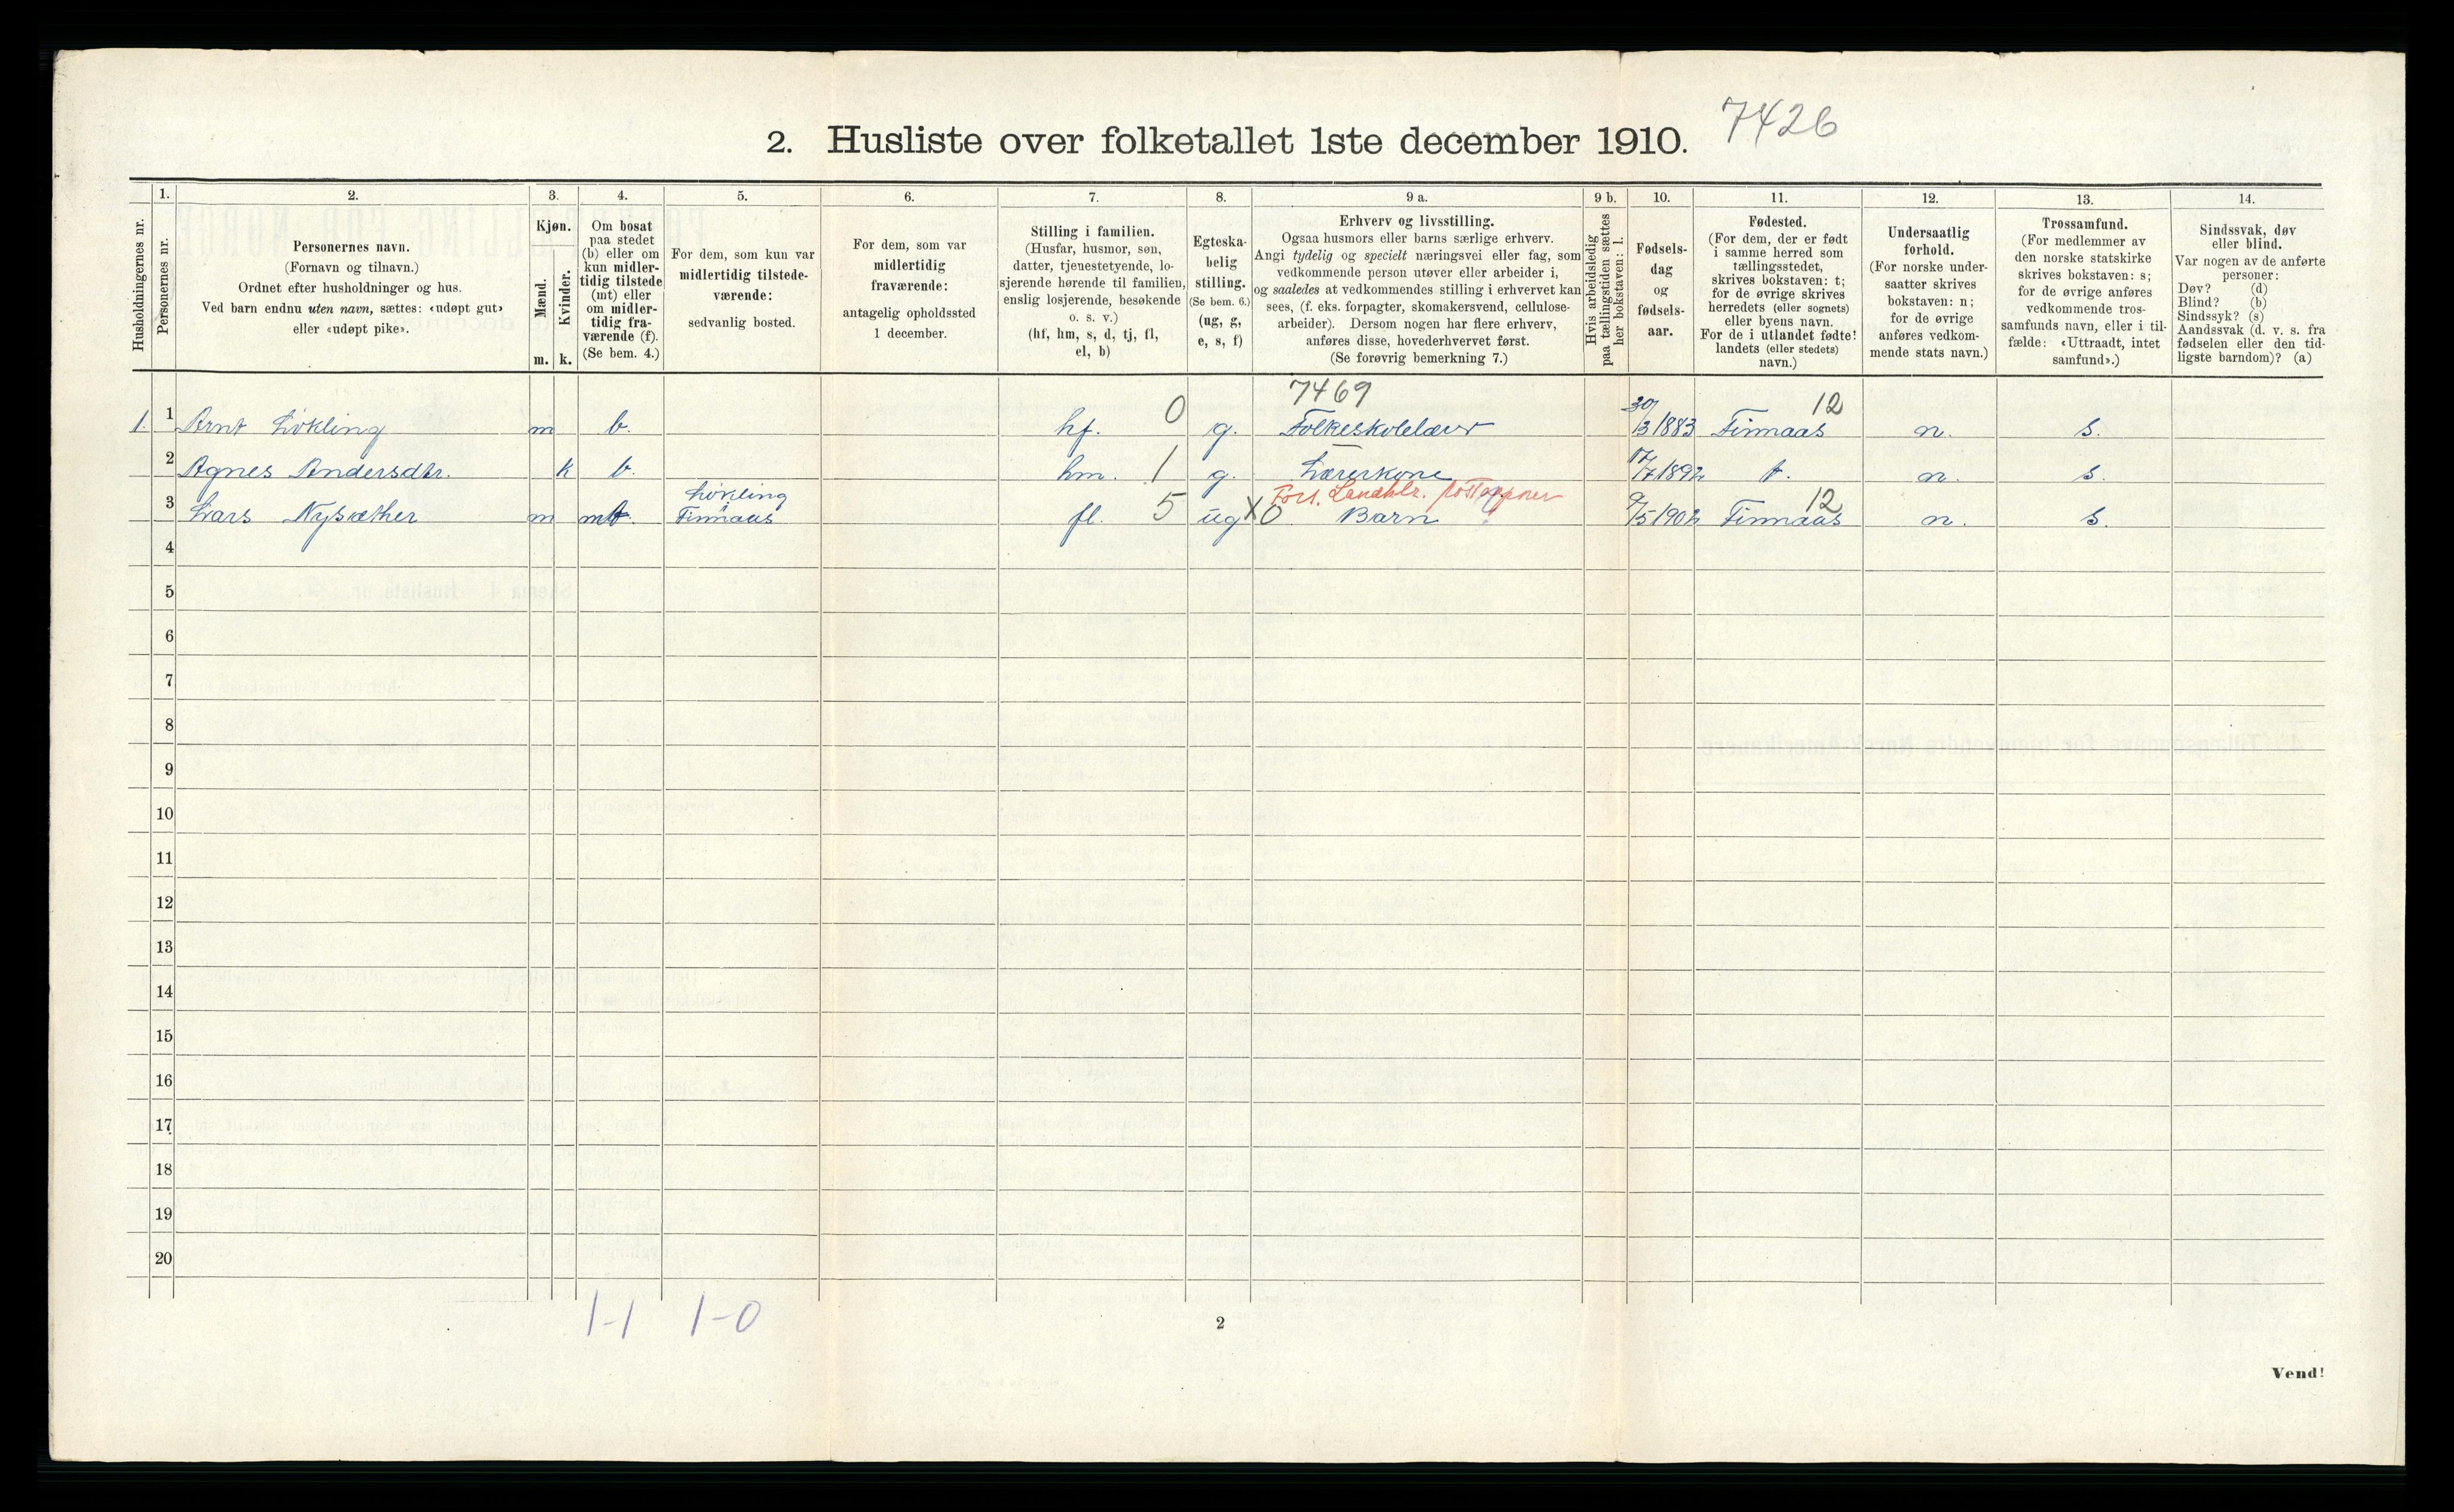 2. Husliste over folketallet 1ste december 1910.
7426
Husholdningernes nr.
1.
Personernes nr.
2.
Personernes navn.
(Fornavn og tilnavn.)
Ordnet efter husholdninger og hus.
Ved barn endnu uten navn, sættes: «udøpt gut»
eller «udøpt pike».
3.
Kjøn.
Mænd.
Kvinder.
m. k.
4.
Om bosat
paa stedet
(b) eller om
kun midler-
tidig tilstede
(mt) eller
om midler-
tidig fra-
værende (f).
(Se bem. 4.)
5.
For dem, som kun var
midlertidig tilstede-
værende:
sedvanlig bosted.
6.
For dem, som var
midlertidig
fraværende:
antagelig opholdssted
1 december.
7.
Stilling i familien.
(Husfar, husmor, søn,
datter, tjenestetyende, lo-
sjerende hørende til familien,
enslig losjerende, besøkende
o. s. v.)
(hf, hm, s, d, tj, fl,
el, b)
8.
Egteska-
belig
stilling.
(Se bem. 6.)
(ug, g,
e, s, f)
9 a.
Erhverv og livsstilling.
Ogsaa husmors eller barns særlige erhverv.
Angi tydelig og specielt næringsvei eller fag, som
vedkommende person utøver eller arbeider i,
og saaledes at vedkommendes stilling i erhvervet kan
sees, (f. eks. forpagter, skomakersvend, cellulose-
arbeider). Dersom nogen har flere erhverv,
anføres disse, hovederhvervet først.
(Se forøvrig bemerkning 7.)
9 b.
Hvis arbeidsledig
paa tællingstiden sættes
her bokstaven: l.
10.
Fødsels-
dag
og
fødsels-
aar.
11.
Fødested.
(For dem, der er født
i samme herred som
tællingsstedet,
skrives bokstaven: t;
for de øvrige skrives
herredets (eller sognets)
eller byens navn.
For de i utlandet fødte:
landets (eller stedets)
navn.)
12.
Undersaatlig
forhold.
(For norske under-
saatter skrives
bokstaven: n;
for de øvrige
anføres vedkom-
mende stats navn.)
13.
Trossamfund.
(For medlemmer av
den norske statskirke
skrives bokstaven: s;
for de øvrige anføres
vedkommende tros-
samfunds navn, eller i til-
fælde: «Uttraadt, intet
samfund».)
14.
Sindssvak, døv
eller blind.
Var nogen av de anførte
personer:
Døv? (d)
Blind? (b)
Sindssyk? (s)
Aandssvak (d. v. s. fra
fødselen eller den tid-
ligste barndom)? (a)
7469
1. 1 Arnt Løkling m b. hf. 0 g. Folkeskolelærer 30/3 1883 Finnaas 12 n. s.
2 Agnes Andersdtr. k b. hm. 1 g. Lærerkone 17/7 1892 t. n. s.
Løkling Fors. Landhlr. postaapner
3 Lars Nysæther m mt. Finnaas fl. 5 ug X 0 Barn 9/5 1902 Finnaas 12 n. s.
4
5
6
7
8
9
10
11
12
13
14
15
16
17
18
19
20
1-1 1-0
2
Vend!